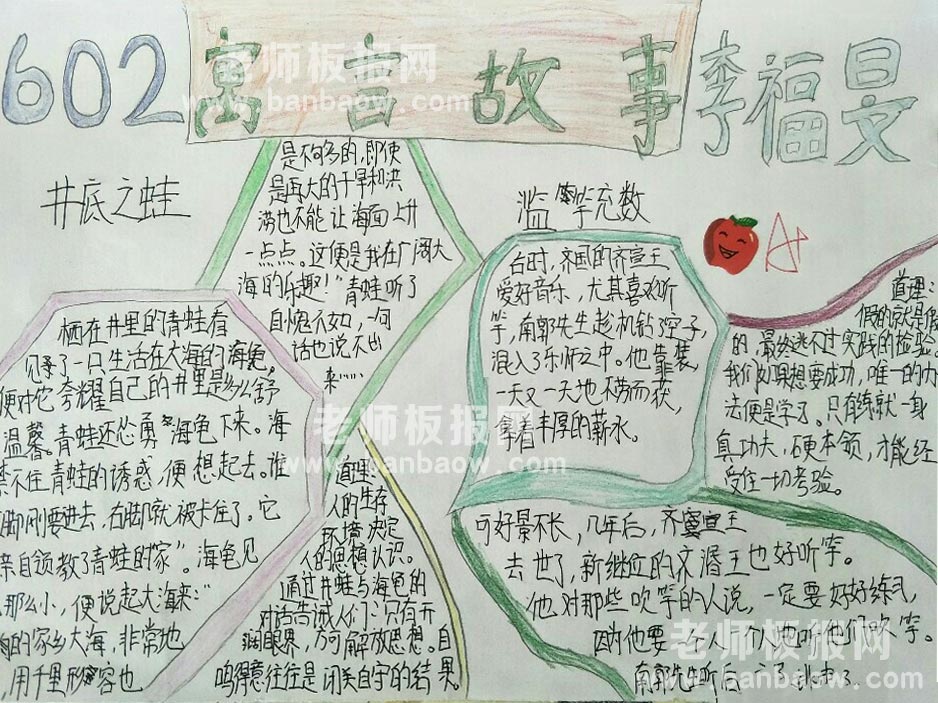 602 寓言故事 李福旻
井底之蛙
栖在井里的青蛙有
了一只生活在大海的海龟,
便对它夸耀自己的井里是多么舒
温馨。青蛙还怂勇海龟下来。海
禁不住青蛙的诱惑,便想起去。谁
脚刚要进去,右脚就被卡住了。它
亲自领教了青蛙的家”。海龟见
那么小,便说起大海来:“
的家乡大海,非常地
,用千里形容也
是不够多的,即使
是再大的干旱和洪
涝也不能让海面上升
一点点。这便是我在广阔大
海的乐趣!”青蛙听了
自愧不如,一句
话也说不出
来……
道理:
人的生存
环境决定
人的思想认识。
通过井蛙与海龟的
对话告诫人们:只有开
阔眼界,方可解放思想。自
鸣得意往往是闭关自守的结果。
滥竽充数
台时,齐国的齐宣王
爱好音乐,尤其喜欢听
竽,南郭先生趁机钻了空子,
混入了乐师之中。他靠装,
一天又一天地不劳而获,
拿着丰厚的薪水。
可好景不长,几年后,齐宣王
去世了,新继位的齐湣王也好听竽。
他对那些吹竽的人说,一定要好好练习,
因为他要一个人一个人地听他们吹竽。
南郭先生听后,
道理:
假的就是假
的,最终逃不过实践的检验。
我们如果想要成功,唯一的办
法便是学习。只有练就一身
真功夫,硬本领,才能经
受住一切考验。
A+
老师板报网
www.banbaow.com
老师板报网
www.banbaow.com
老师板报网
www.banbaow.com